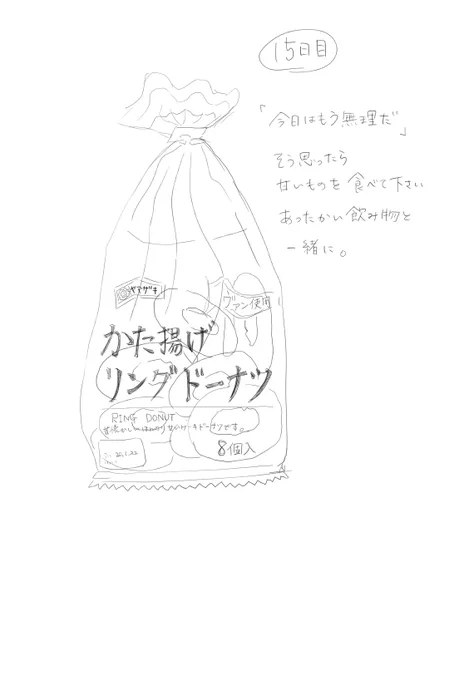 15日目
「今日はもう無理だ」
そう思ったら
甘いものを食べて下さい
あったかい飲み物と
一緒に。
ヤマザキ
使用
かた揚げ
リングドーナツ
RING DONUT
ケーキドーナツです。
8個入